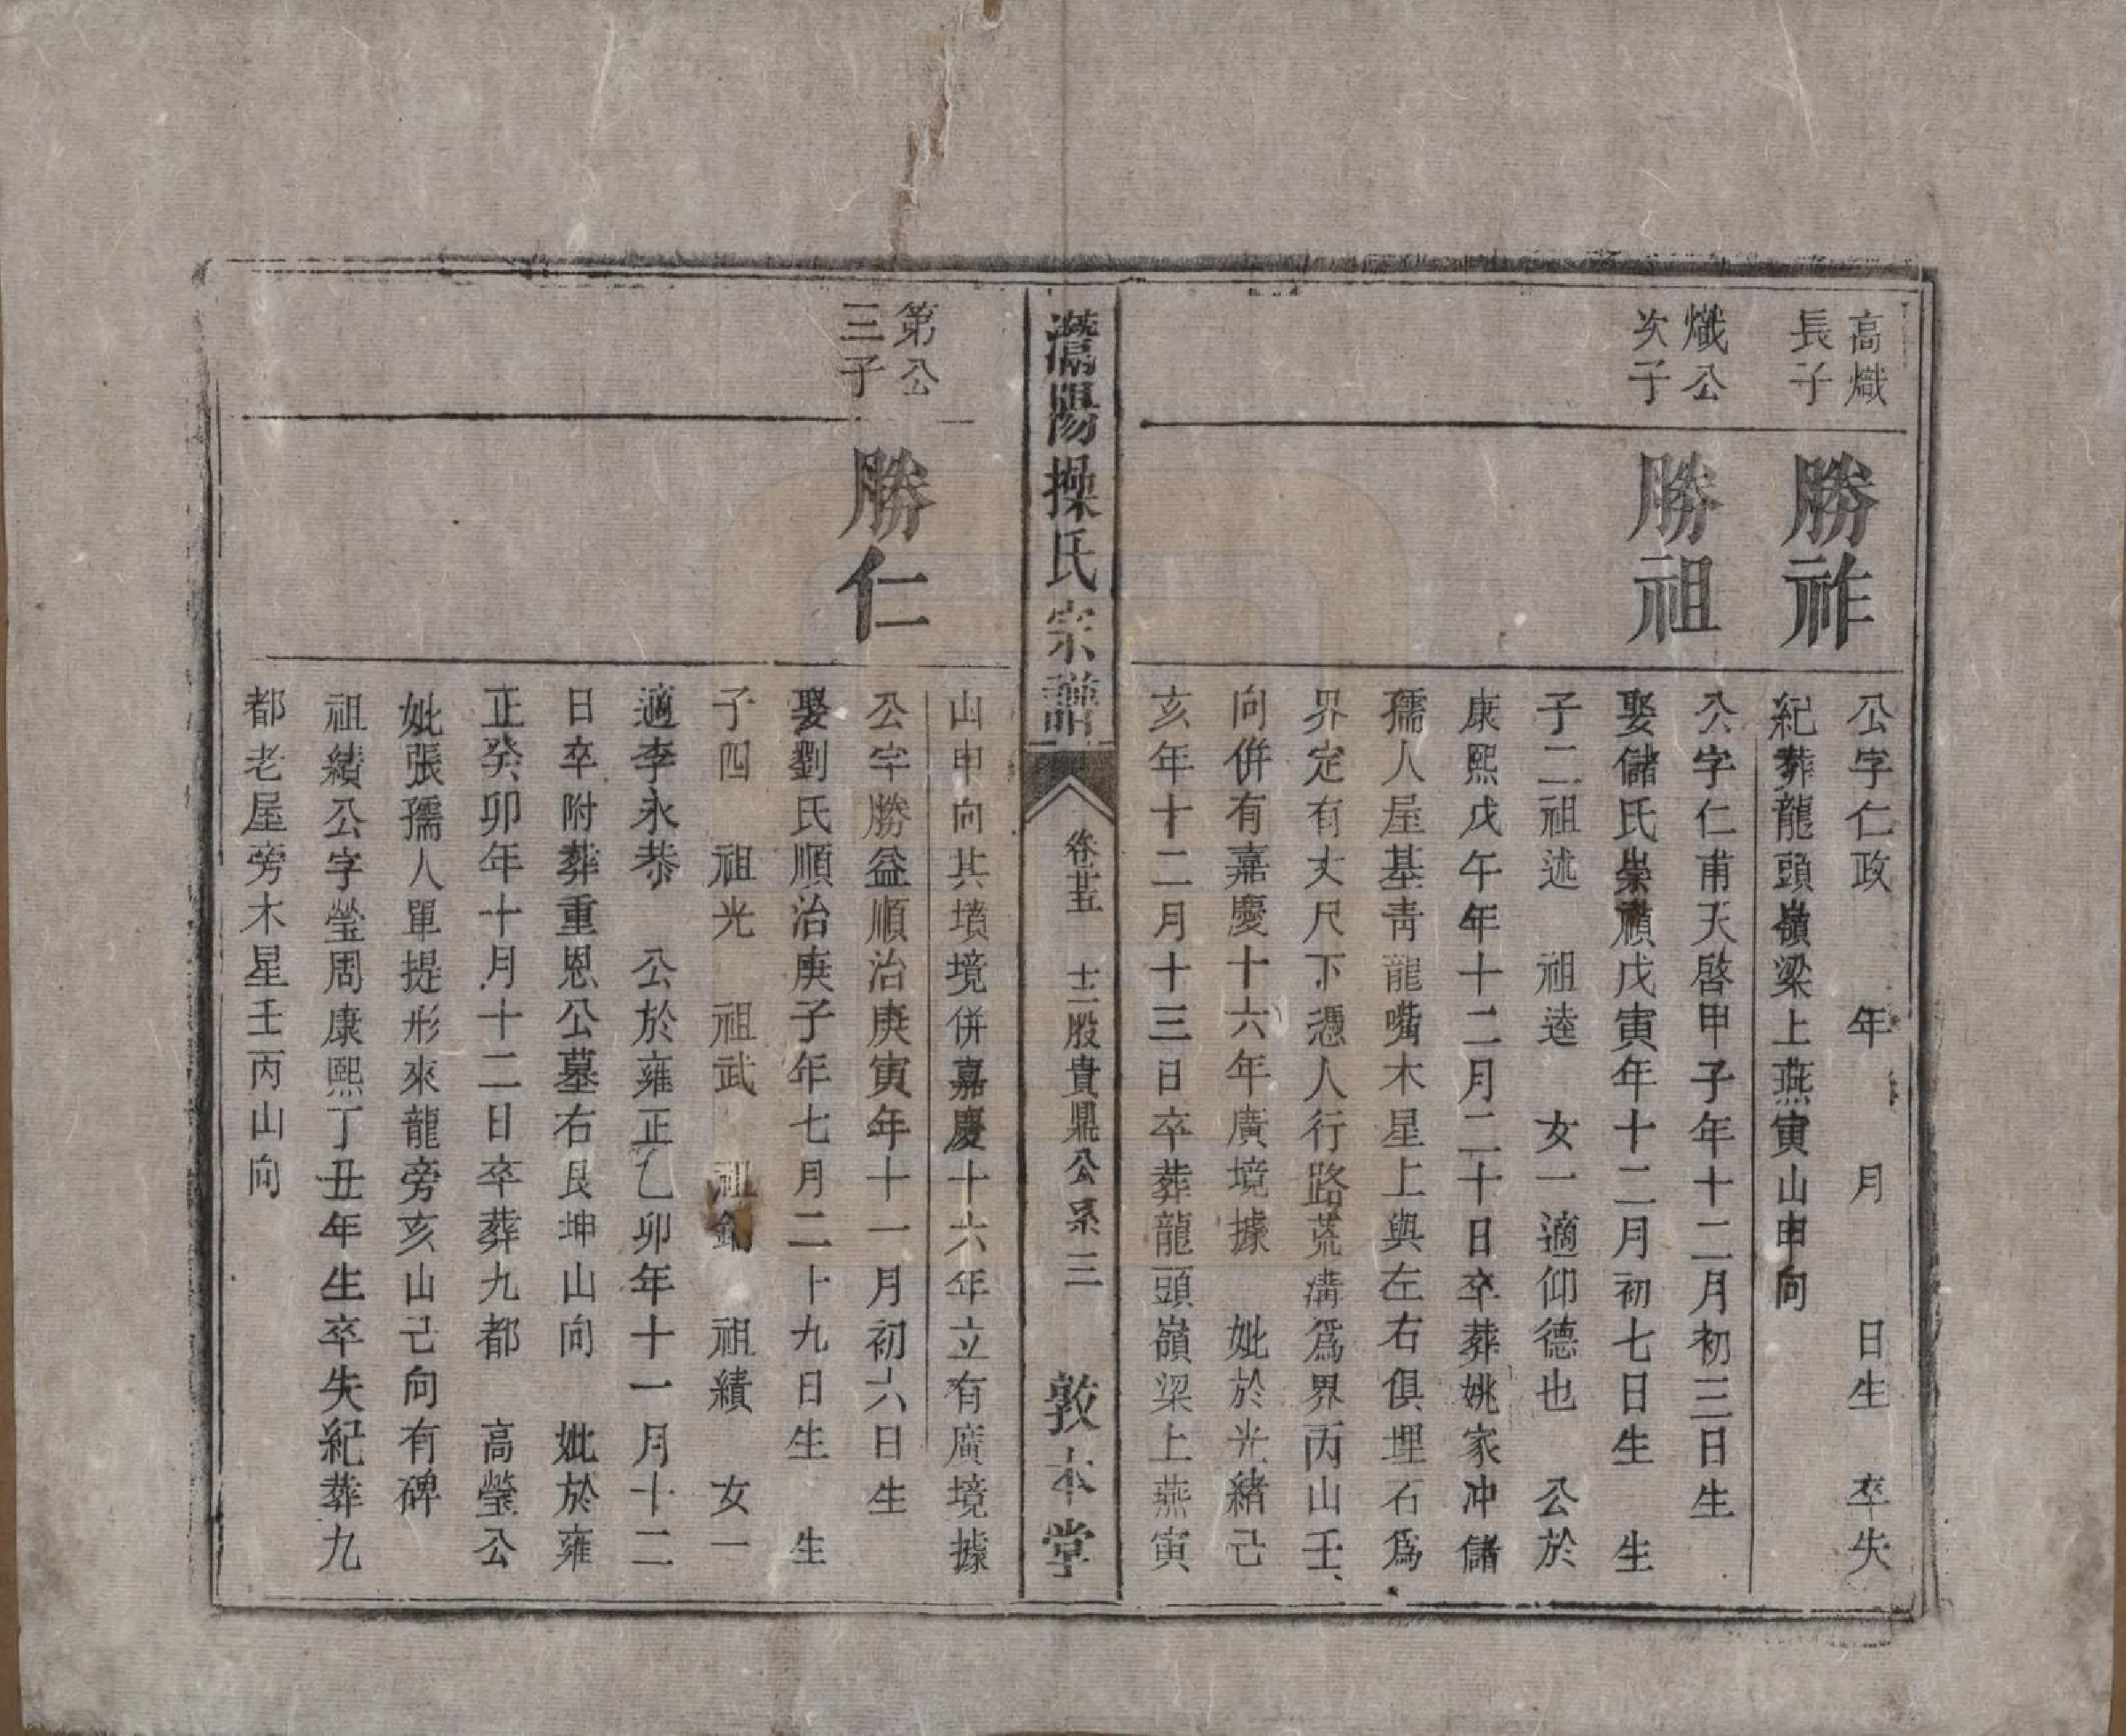 高熾
長子
勝祚
公字仁政　年　月　日生　卒失
紀葬龍頭嶺梁上燕寅山申向
熾公
次子
勝祖
公字仁甫天啓甲子年十二月初三日生
娶儲氏崇禎戊寅年十二月初七日生　生
子二祖述　祖逵　女一適仰德也　公於
康熙戊午年十二月二十日卒葬姚家冲儲
孺人屋基青龍嘴木星上與左右俱埋石爲
界定有丈尺下憑人行路荒溝爲界丙山壬
向併有嘉慶十六年廣境據　妣於光緒己
亥年十二月十三日卒葬龍頭嶺梁上燕寅
灊陽操氏宗譜
卷廿五　十二股貴鼎公系　三
敦本堂
山申向其墳境併嘉慶十六年立有廣境據
第公
三子
勝仁
公字勝益順治庚寅年十一月初六日生
娶劉氏順治庚子年七月二十九日生　生
子四　祖光　祖武　祖　祖績　女一
適李永恭　公於雍正乙卯年十一月十二
日卒附葬重恩公墓右艮坤山向　妣於雍
正癸卯年十月十二日卒葬九都　高瑩公
妣張孺人單提形來龍旁亥山己向有碑
祖績公字瑩周康熙丁丑年生卒失紀葬九
都老屋旁木星壬丙山向